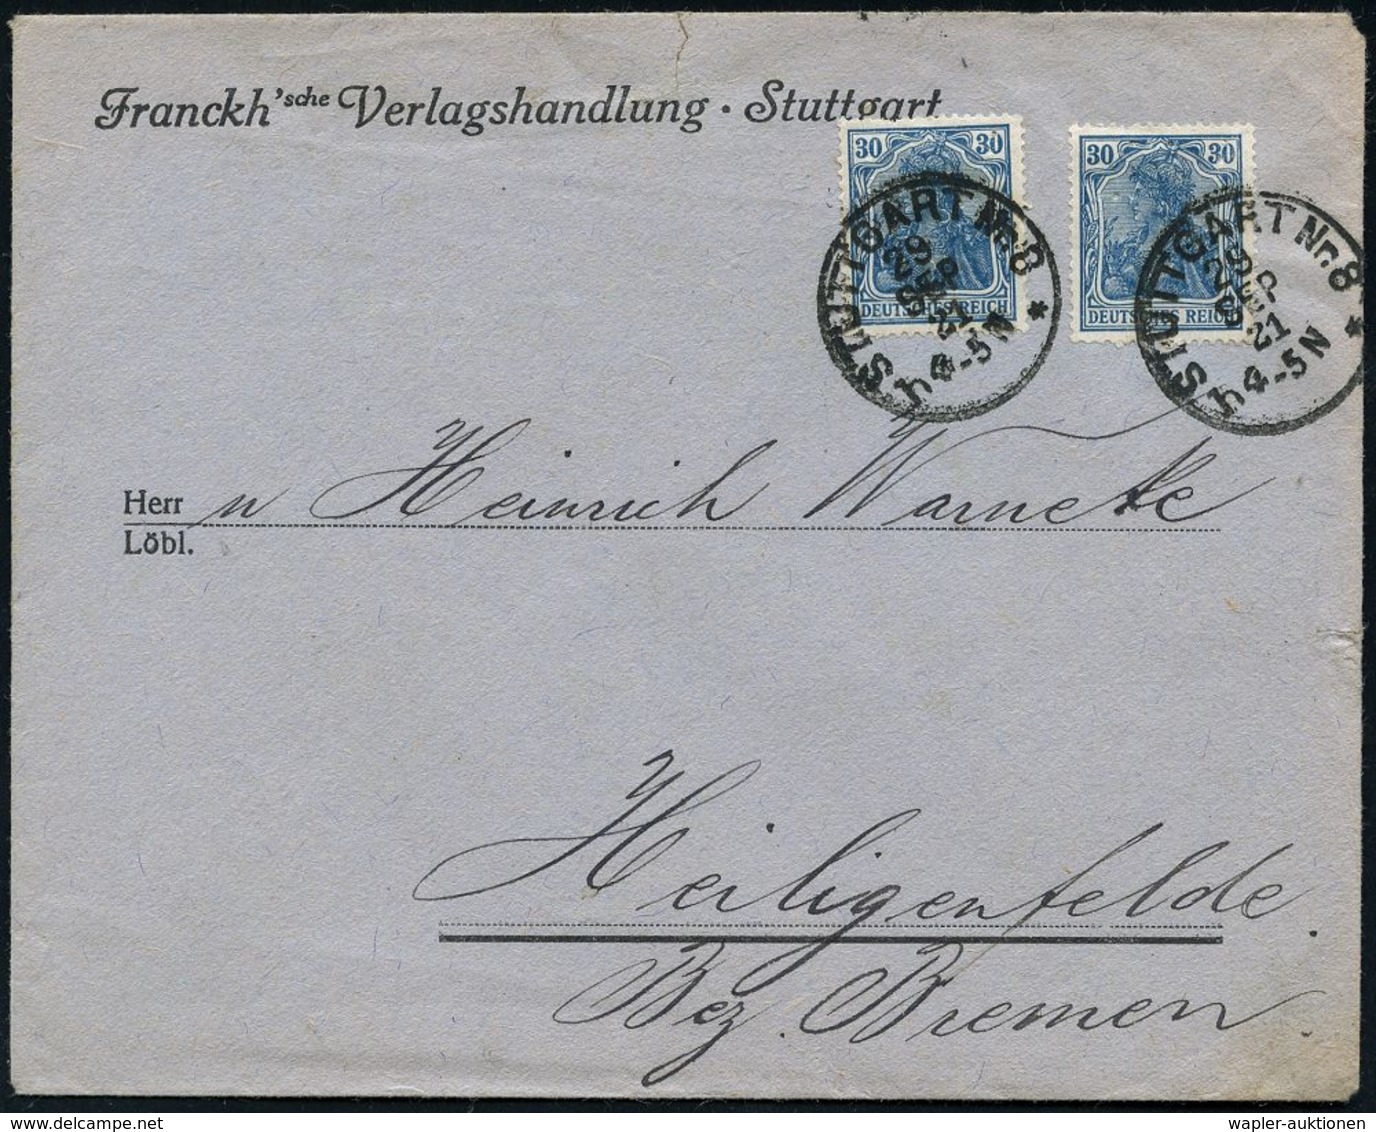 Franckh'sche Verlagshandlung · Stuttgart
30 30
DEUTSCHES REICH
30 30
DEUTSCHES REICH
STUTTGART Nr. 8 *
29 SEP 21
h 4-5 N
STUTTGART Nr. 8 *
29 SEP 21
h 4-5 N
Herr n Heinrich Warneke
Löbl.
Heiligenfelde
Bez. Bremen.
wapler-auktionen